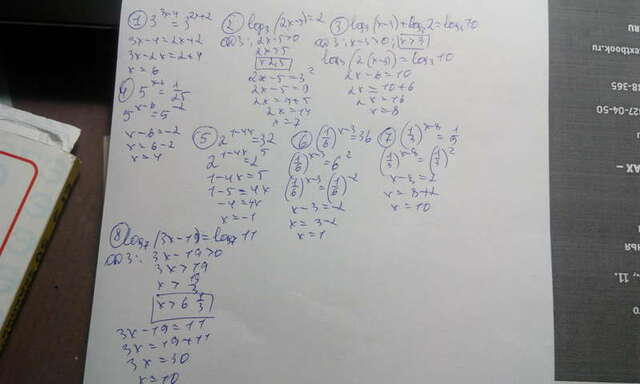 ① 3^(3x-4) = 3^(2x+2)
3x-4=2x+2
3x-2x=2+4
x=6
② log₃(2x-5)=2
ОДЗ: 2x-5>0
2x>5
x>2,5
2x-5=3²
2x-5=9
2x=9+5
2x=14
x=7
③
ОДЗ: x-3>0; x>3
2x-6=10
2x=10+6
2x=16
x=8
④ 5^(x-6) = 1/25
5^(x-6) = 5^(-2)
x-6=-2
x=6-2
x=4
⑤ 2^(1-4x)=32
2^(1-4x)=2^5
1-4x=5
1-5=4x
-4=4x
x=-1
⑥ (1/6)^(x-3)=36
(1/6)^(x-3)=6²
(1/6)^(x-3)=(1/6)^(-2)
x-3=-2
x=3-2
x=1
⑦ (1/3)^(x-8)=1/9
(1/3)^(x-8)=(1/3)²
x-8=2
x=8+2
x=10
⑧ log₇(3x-19)=log₇11
ОДЗ: 3x-19>0
3x>19
x>19/3
x>6 1/3
3x-19=11
3x=19+11
3x=30
x=10
textbook.ru
RU
38-365
927-04-50
RU
, 11.